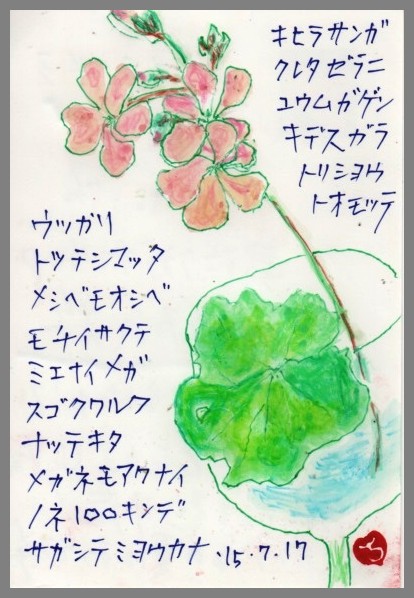 キヒラサンガ
クレタゼラニ
ユウムガゲン
キデスガラ
トリショウ
トオモッテ
ウッガリ
トッテシマッタ
メシベモオシベ
モナイサクテ
ミエナイメガ
スゴクワルク
ナッテキタ
メガネモアワナイ
ノネ100キンデ
サガシテミヨウカナ .15.7.17
ち